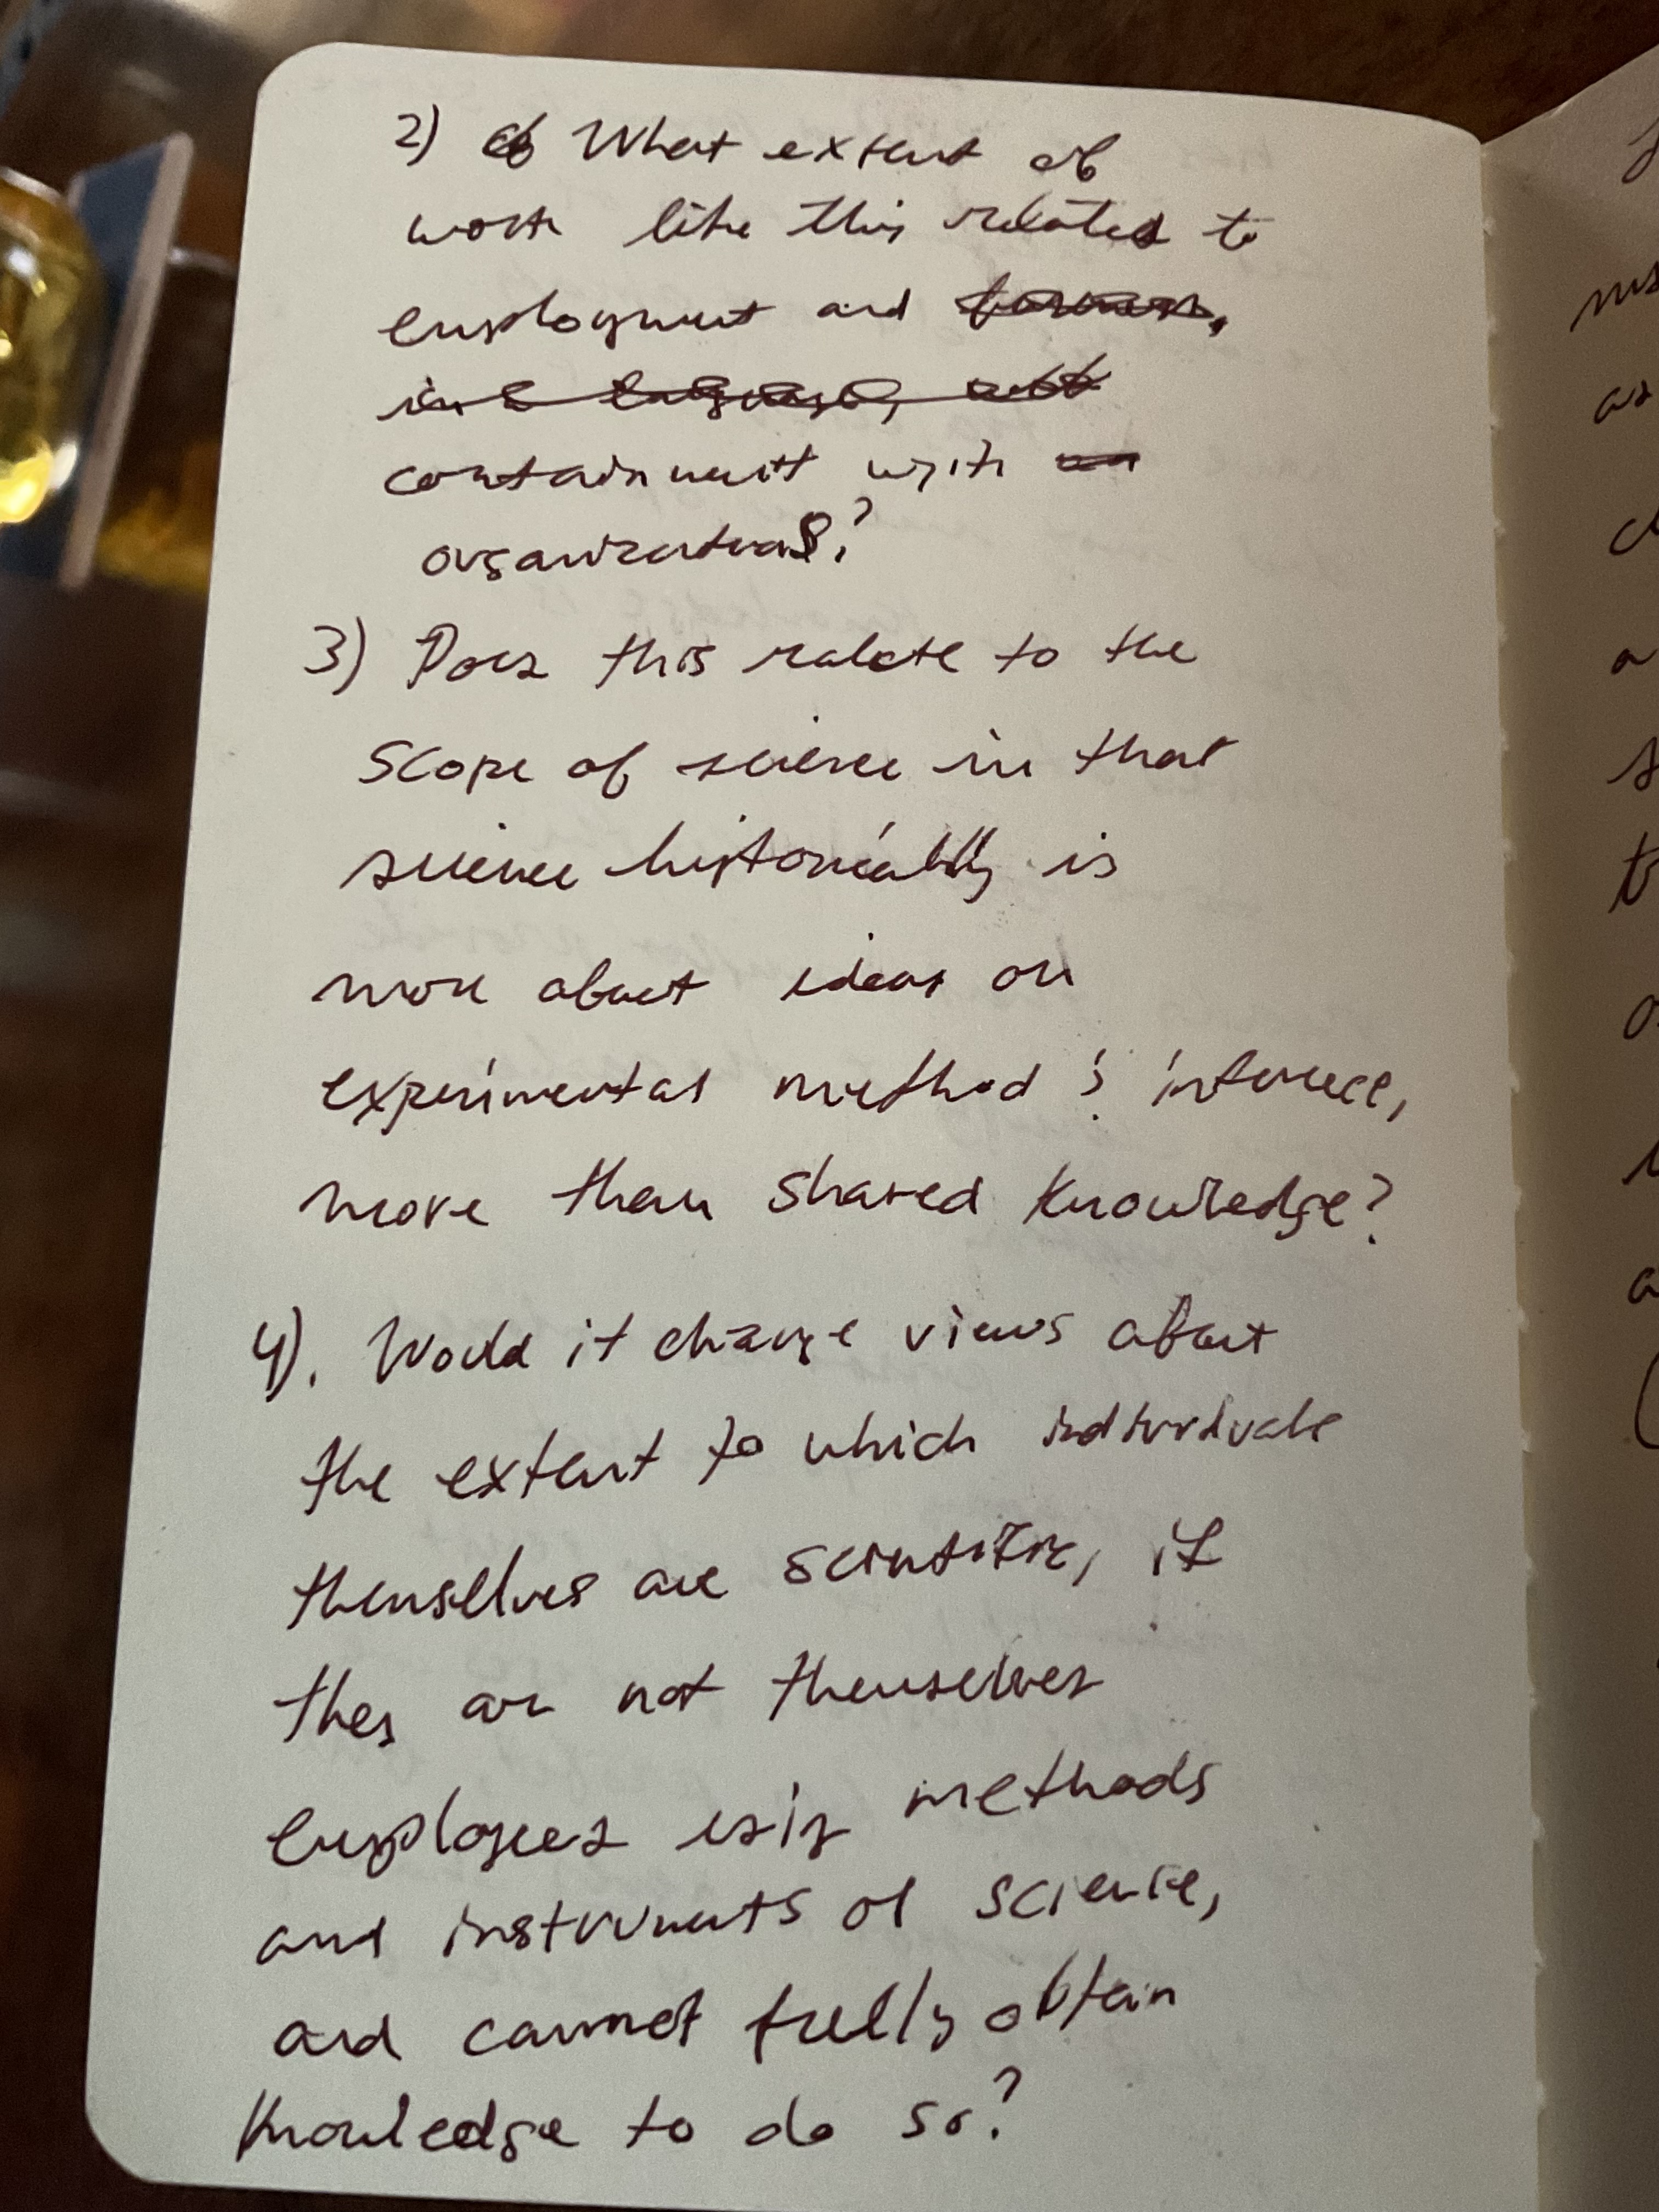 2) What extent of
work like this related to
employment and
containment with
organizations?
3) Does this relate to the
scope of science in that
science historically is
more about ideas on
experimental method & inference,
more than shared knowledge?
4). Would it change views about
the extent to which individuals
themselves are scientific, if
they are not themselves
employees using methods
and instruments of science,
and cannot fully obtain
knowledge to do so?